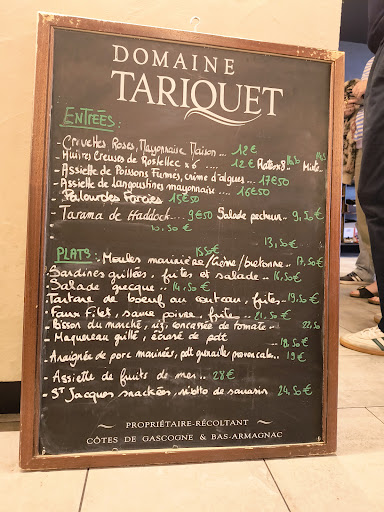 DOMAINE
TARIQUET
ENTRÉES :
- Crevettes Roses, Mayonnaise Maison ... 12 €
- Huîtres Creuses de Roskellec x 6 .... 12 €
- Assiette de Poissons Fumés, crème d'algues ... 17€50
- Assiette de Langoustines mayonnaise .... 16€50
- Palourdes Farcies 15€50
- Tarama de Haddock.... 9€50 Salade pecheur ... 9,50 €
10,50 €
13,50 €
PLATS : 15,50€
- Moules marinière/crème/bretonne .. 17,50€
- Sardines grillées, frites et salade .. 16,50€
- Salade grecque .. 14,50 €
- Tartare de boeuf au couteau, frites.. 19,50 €
- Faux Filet, sauce poivre, frites .. 21,50 €
- Poisson du marché, riz, concassée de tomate .. 22,50
- Maquereau grillé, écrasé de pdt 18,50 €
- Araignée de porc marinées, pdt grenailles provençale.. 19 €
- Assiette de fruits de mer .. 28 €
- St Jacques snackées, risotto de sarrasin 24,50 €
- PROPRIÉTAIRE-RÉCOLTANT -
CÔTES DE GASCOGNE & BAS-ARMAGNAC